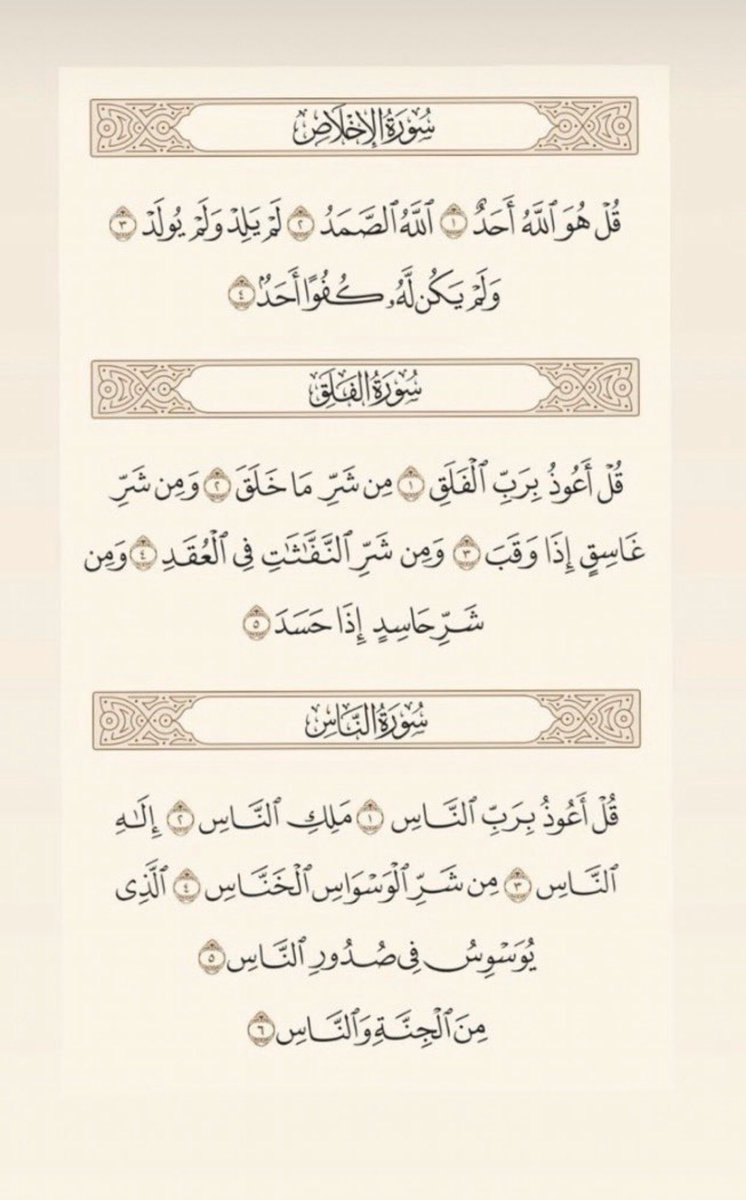 سُورَةُ الإِخْلَاصِ
قُلْ هُوَ ٱللَّهُ أَحَدٌ ١ ٱللَّهُ ٱلصَّمَدُ ٢ لَمْ يَلِدْ وَلَمْ يُولَدْ ٣
وَلَمْ يَكُن لَّهُۥ كُفُوًا أَحَدٌۢ ٤
سُورَةُ الفَلَقِ
قُلْ أَعُوذُ بِرَبِّ ٱلْفَلَقِ ١ مِن شَرِّ مَا خَلَقَ ٢ وَمِن شَرِّ
غَاسِقٍ إِذَا وَقَبَ ٣ وَمِن شَرِّ ٱلنَّفَّـٰثَـٰتِ فِى ٱلْعُقَدِ ٤ وَمِن
شَرِّ حَاسِدٍ إِذَا حَسَدَ ٥
سُورَةُ النَّاسِ
قُلْ أَعُوذُ بِرَبِّ ٱلنَّاسِ ١ مَلِكِ ٱلنَّاسِ ٢ إِلَـٰهِ
ٱلنَّاسِ ٣ مِن شَرِّ ٱلْوَسْوَاسِ ٱلْخَنَّاسِ ٤ ٱلَّذِى
يُوَسْوِسُ فِى صُدُورِ ٱلنَّاسِ ٥
مِنَ ٱلْجِنَّةِ وَٱلنَّاسِ ٦